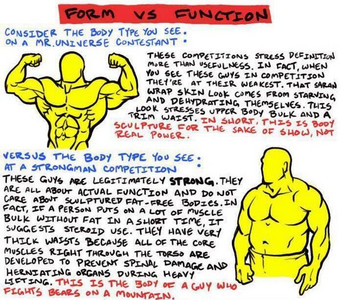 FORM VS FUNCTION
CONSIDER THE BODY TYPE YOU SEE
ON A MR.UNIVERSE CONTESTANT:
THESE COMPETITIONS STRESS DEFINITION
MORE THAN USEFULNESS. IN FACT, WHEN
YOU SEE THESE GUYS IN COMPETITION
THEY'RE AT THEIR WEAKEST. THAT SARAN
WRAP SKIN LOOK COMES FROM STARVING
AND DEHYDRATING THEMSELVES. THIS
LOOK STRESSES UPPER BODY BULK AND A
TRIM WAIST. IN SHORT, THIS IS BODY
SCULPTURE FOR THE SAKE OF SHOW, NOT
REAL POWER.
VERSUS THE BODY TYPE YOU SEE
AT A STRONGMAN COMPETITION:
THESE GUYS ARE LEGITIMATELY STRONG. THEY
ARE ALL ABOUT ACTUAL FUNCTION AND DO NOT
CARE ABOUT SCULPTURED FAT-FREE BODIES. IN
FACT, IF A PERSON PUTS ON A LOT OF MUSCLE
BULK WITHOUT FAT IN A SHORT TIME, IT
SUGGESTS STEROID USE. THEY HAVE VERY
THICK WAISTS BECAUSE ALL OF THE CORE
MUSCLES RIGHT THROUGH THE TORSO ARE
DEVELOPED TO PREVENT SPINAL DAMAGE AND
HERNIATING ORGANS DURING HEAVY
LIFTING. THIS IS THE BODY OF A GUY WHO
FIGHTS BEARS ON A MOUNTAIN.